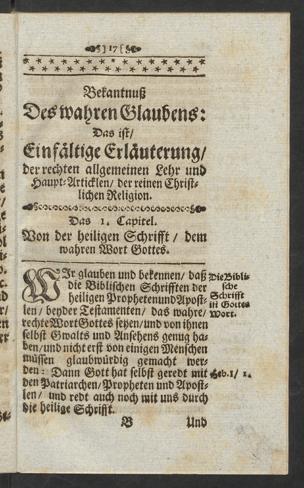 ]17[
Bekantnuß
Des wahren Glaubens:
Das ist/
Einfältige Erläuterung/
der rechten allgemeinen Lehr und
Haupt-Articklen/ der reinen Christ-
lichen Religion.
Das 1. Capitel.
Von der heiligen Schrifft / dem
wahren Wort Gottes.
WIr glauben und bekennen/ daß
die Biblischen Schrifften der
heiligen Propheten und Apost-
len/ beyder Testamenten/ das wahre/
rechte Wort Gottes seyen/ und von ihnen
selbst Gwalts und Ansehens genug ha-
ben/ und nicht erst von einigen Menschen
müssen glaubwürdig gemacht wer-
den: Dann Gott hat selbst geredt mit
den Patriarchen/ Propheten und Apost-
len/ und redt auch noch mit uns durch
die heilige Schrifft.
Die Bibli-
sche
Schrifft
ist Gottes
Wort.
Heb. 1/ 1.
B Und